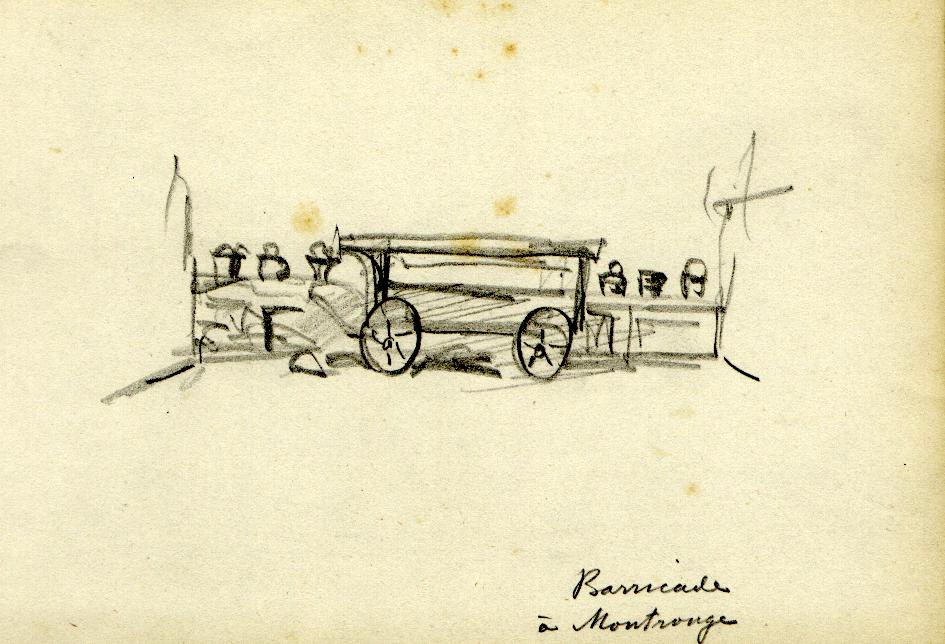 Barricade
à Montrouge